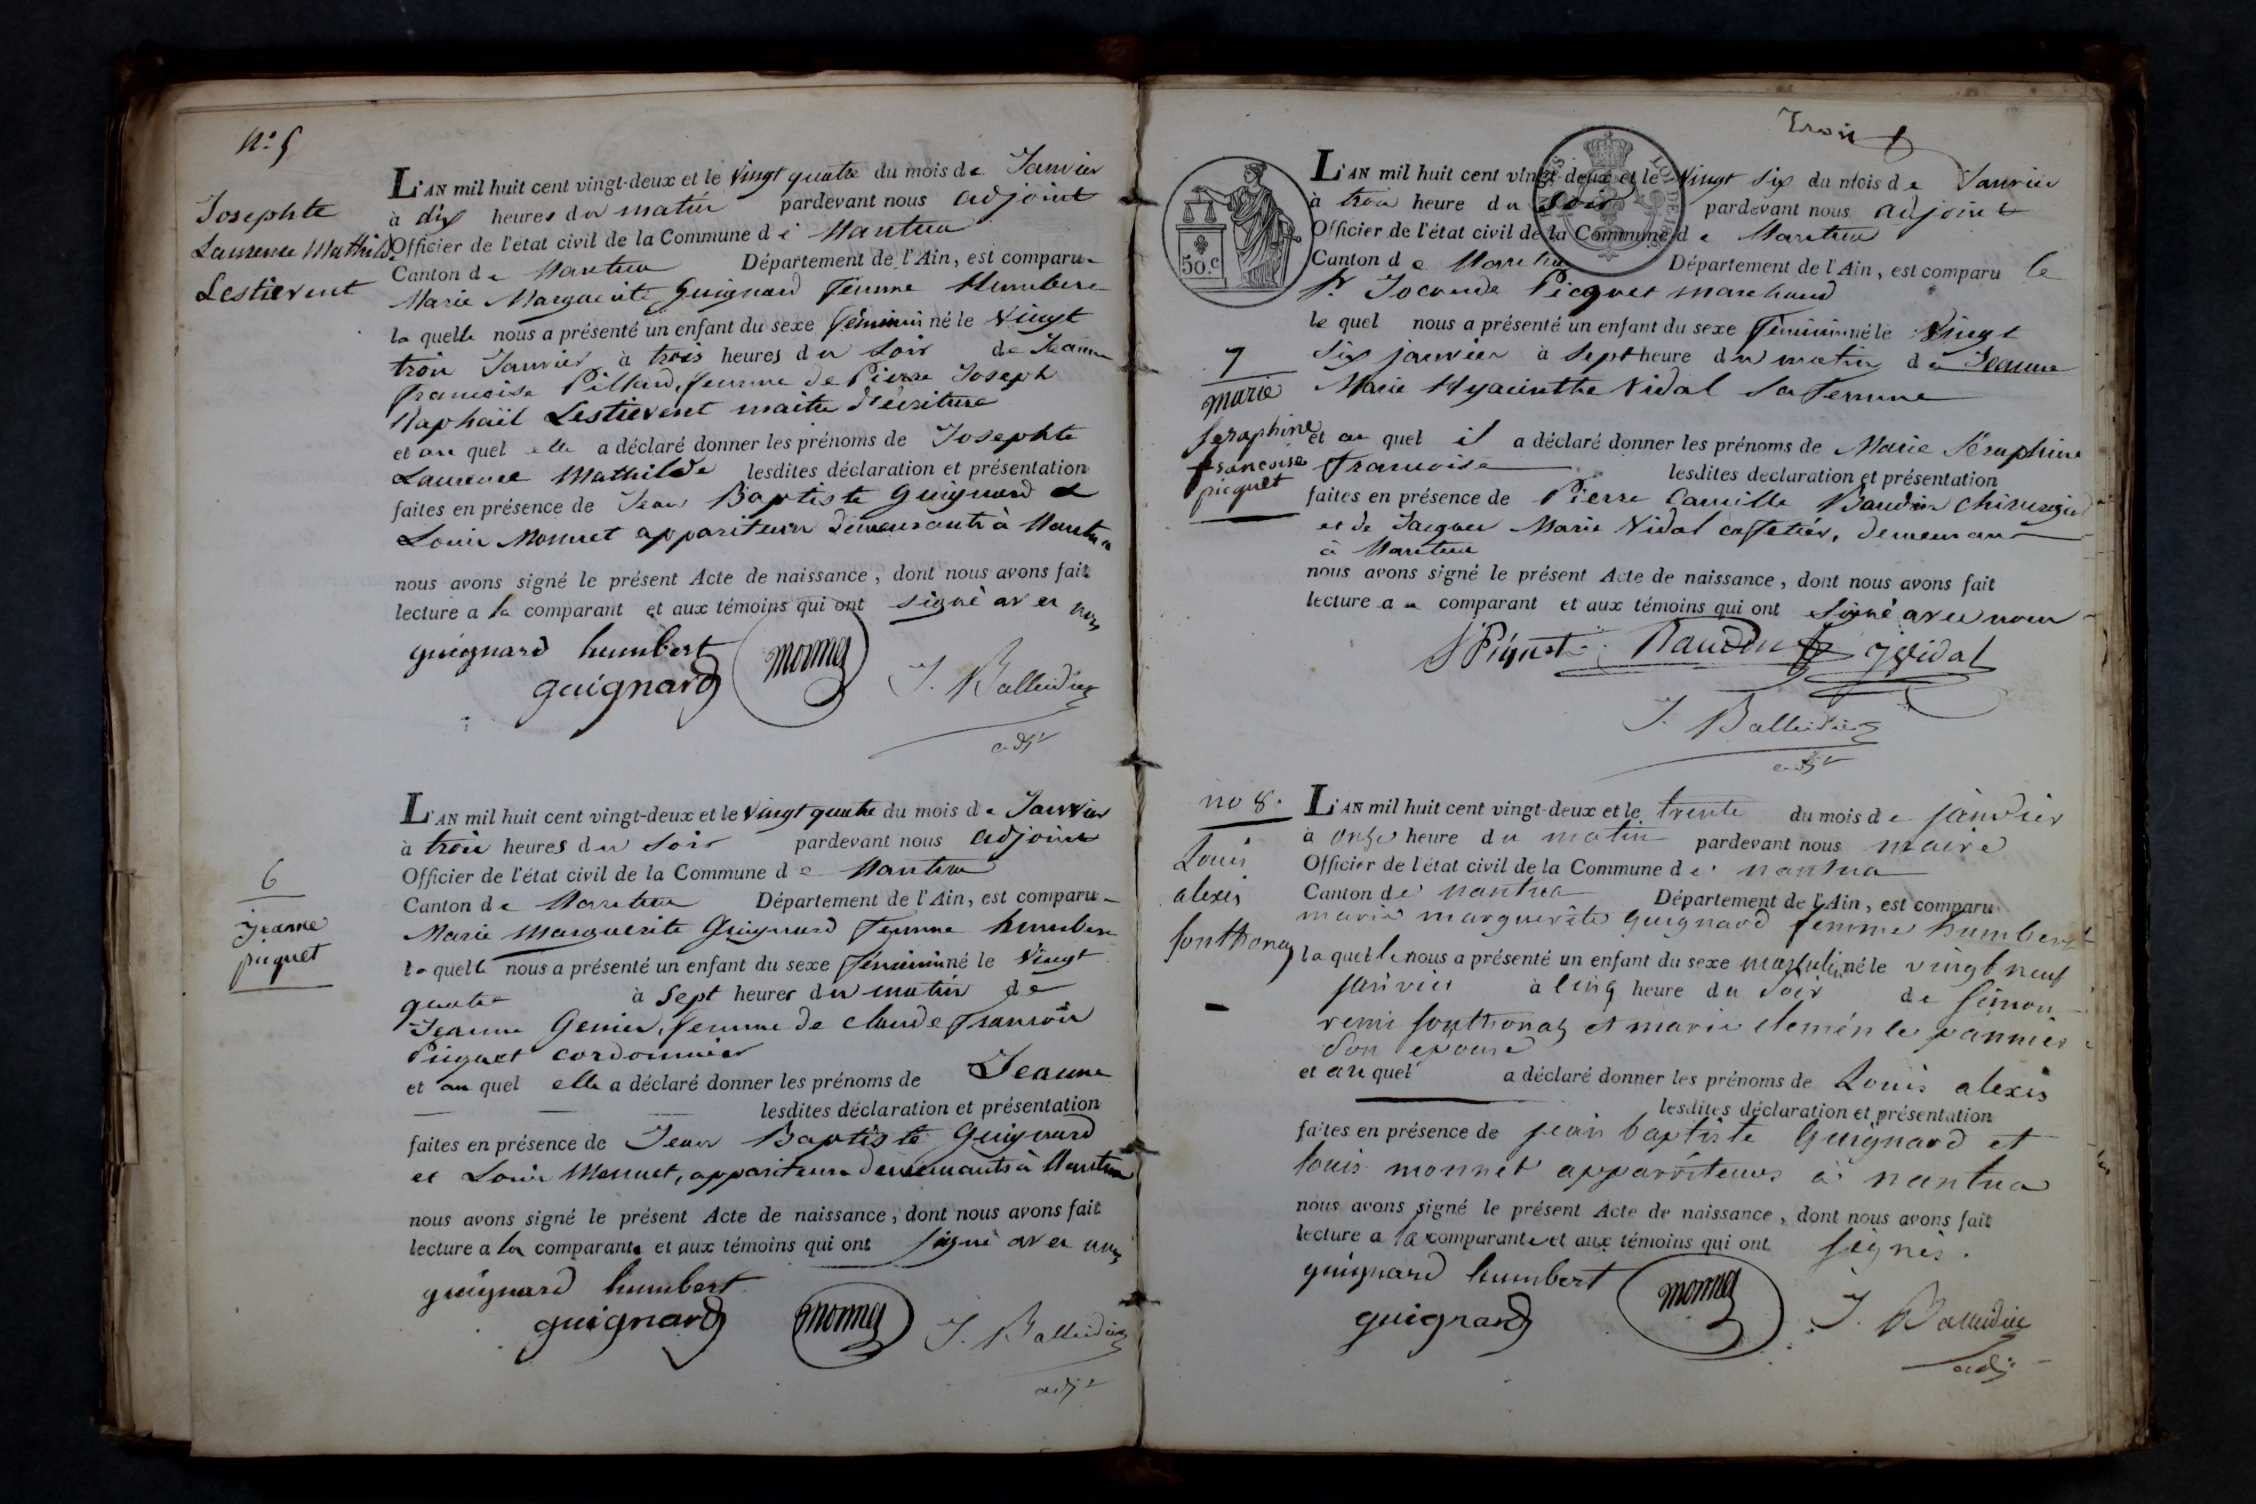 N.° 5
Josephte
Laurence Mathilde
Lestievent
L'AN mil huit cent vingt-deux et le vingt quatre du mois de Janvier
à dix heures du matin pardevant nous adjoint
Officier de l'état civil de la Commune de Nantua
Canton de Nantua Département de l'Ain, est comparu
Marie Marguerite Guignard femme Humbert
la quelle nous a présenté un enfant du sexe féminin né le vingt
trois Janvier à trois heures du soir de Jeanne
francoise Pillard, femme de Pierre Joseph
Raphaël Lestievent maitre d'écriture
et au quel elle a déclaré donner les prénoms de Josephte
Laurence Mathilde lesdites déclaration et présentation
faites en présence de Jean Baptiste Guignard et
Louis Monnet appariteurs demeurants à Nantua
nous avons signé le présent Acte de naissance, dont nous avons fait
lecture a la comparant et aux témoins qui ont signé avec nous
guignard humbert
guignard monnet J. Balleidier
adjt
6
jeanne
piquet
L'AN mil huit cent vingt-deux et le vingt quatre du mois de Janvier
à trois heures du soir pardevant nous adjoint
Officier de l'état civil de la Commune de Nantua
Canton de Nantua Département de l'Ain, est comparu
Marie Marguerite Guignard femme humbert
la quelle nous a présenté un enfant du sexe féminin né le vingt
quatre à sept heures du matin de
Jeanne Genier, femme de claude francois
Piquet cordonnier
et au quel elle a déclaré donner les prénoms de Jeanne
lesdites déclaration et présentation
faites en présence de Jean Baptiste Guignard
et Louis Monnet, appariteurs demeurants à Nantua
nous avons signé le présent Acte de naissance, dont nous avons fait
lecture a la comparante et aux témoins qui ont signé avec nous
guignard humbert
guignard monnet J. Balleidier
adjt
Trois
50.c
L'AN mil huit cent vingt-deux et le vingt six du mois de Janvier
à trois heure du soir pardevant nous adjoint
Officier de l'état civil de la Commune de Nantua
Canton de Nantua Département de l'Ain, est comparu le
Sr Joconde Picquet marchand
le quel nous a présenté un enfant du sexe féminin né le vingt
six janvier à sept heure du matin de Jeanne
Marie Hyacinthe Vidal sa femme
7
marie
seraphine
francoise
picquet
et au quel il a déclaré donner les prénoms de Marie Séraphine
francoise lesdites declaration et présentation
faites en présence de Pierre Camille Baudin chirurgien
et de Jacques Marie Vidal caffetier, demeurant
à Nantua
nous avons signé le présent Acte de naissance, dont nous avons fait
lecture au comparant et aux témoins qui ont signé avec nous
Baudin j Vidal
J. Balleidier
adjt
no 8.
Louis
alexis
sonthonax
L'AN mil huit cent vingt-deux et le trente du mois de janvier
à onze heure du matin pardevant nous maire
Officier de l'état civil de la Commune de nantua
Canton de nantua Département de l'Ain, est comparu
marie marguerite guignard femme humbert
la quelle nous a présenté un enfant du sexe masculin né le vingt neuf
janvier à cinq heure du soir de simon
remi sonthonax et marie clemence vannier
son epouse
et au quel a déclaré donner les prénoms de Louis alexis
lesdites déclaration et présentation
faites en présence de jean baptiste Guignard et
louis monnet appariteurs à nantua
nous avons signé le présent Acte de naissance, dont nous avons fait
lecture a la comparante et aux témoins qui ont signés.
guignard humbert
guignard monnet J. Balleidier
adj